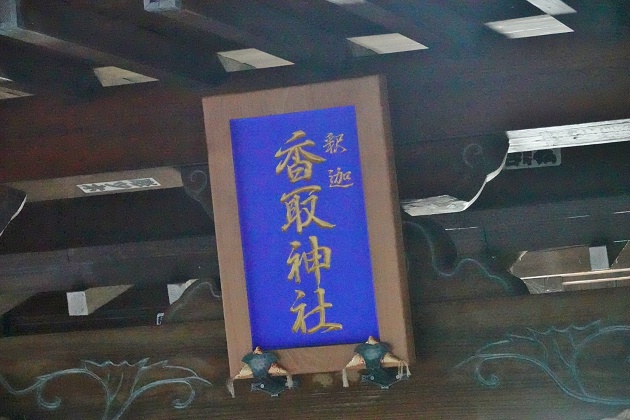 釈迦
香取神社